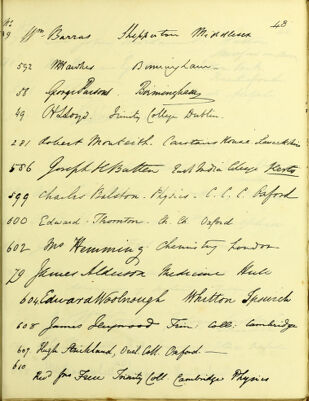 No. 43
Wm Barras Shepperton Middlesex
592 Hawkes Birmingham
58 George Parsons Birmingham
49 H Lloyd. Trinity College Dublin.
281 Robert Monteith. Carstairs House Lanarkshire
586 Joseph H Batten East India College Herts
599 Charles Belston. Physics. C. C. C. Oxford
600 Edward. Thornton. Ch. Ch. Oxford
602 Jno Hemming Chemistry London
79 James Alderson Medicine Hull
604 Edward Woolnough Whitton Ipswich
608 James Heywood Trin: Coll: Cambridge
609 Hugh Strickland, Oriel Coll. Oxford —
610
Revd Jno Trinity Coll Cambridge Physics